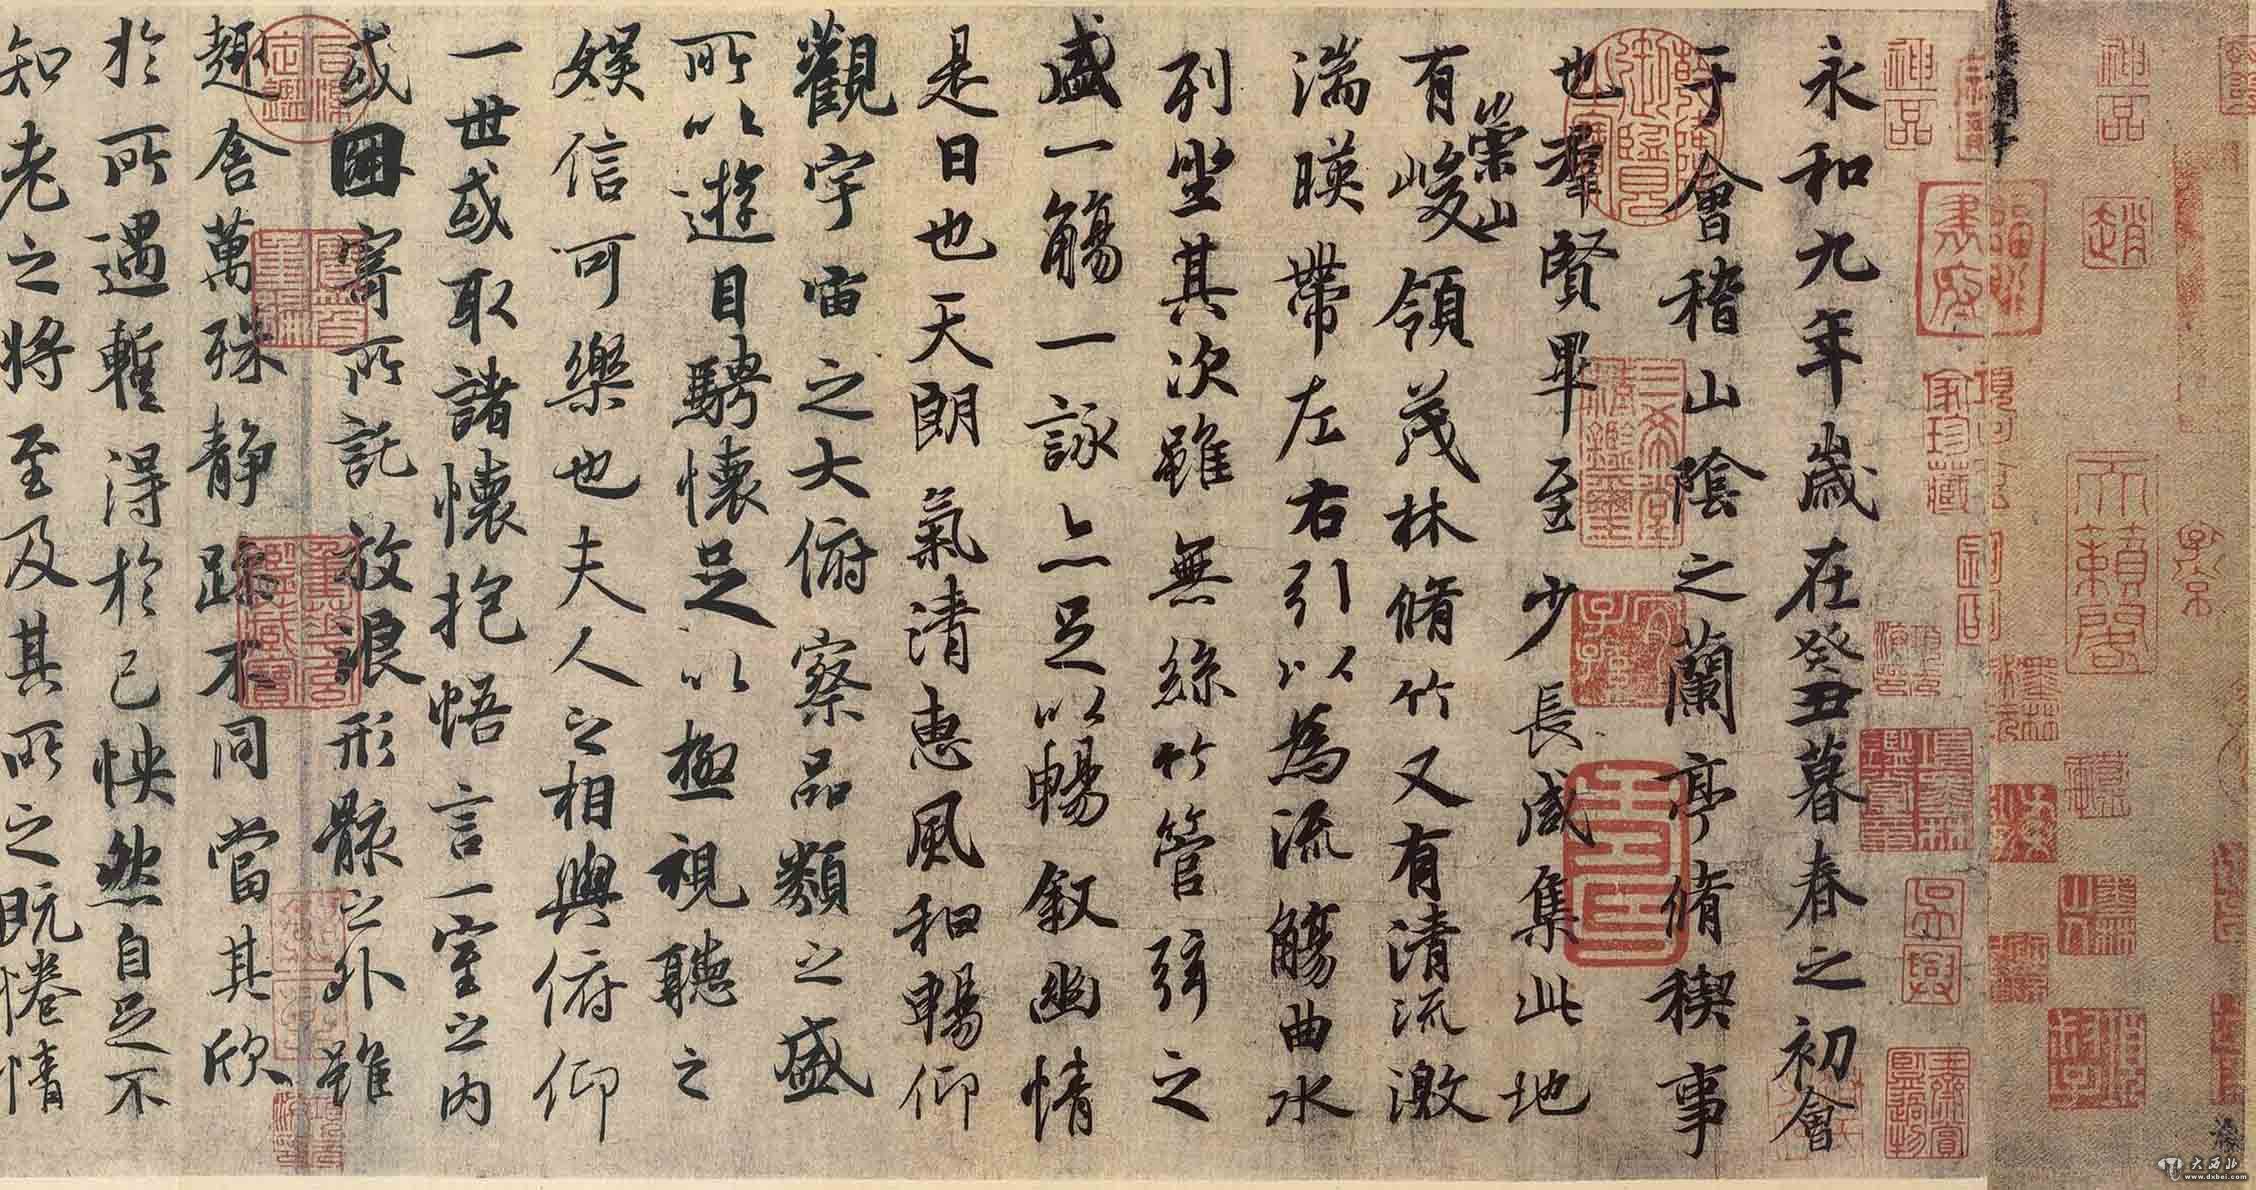 永和九年歲在癸丑暮春之初會
于會稽山陰之蘭亭脩稧事
也羣賢畢至少長咸集此地
有崇山峻領茂林脩竹又有清流激
湍暎帶左右引以為流觴曲水
列坐其次雖無絲竹管弦之
盛一觴一詠亦足以暢敘幽情
是日也天朗氣清惠風和暢仰
觀宇宙之大俯察品類之盛
所以遊目騁懷足以極視聽之
娛信可樂也夫人之相與俯仰
一世或取諸懷抱悟言一室之內
或因寄所託放浪形骸之外雖
趣舍萬殊靜躁不同當其欣
於所遇暫得於己怏然自足不
知老之將至及其所之既惓情
神品
趙
天籟閣
大西北
www.dxbei.com